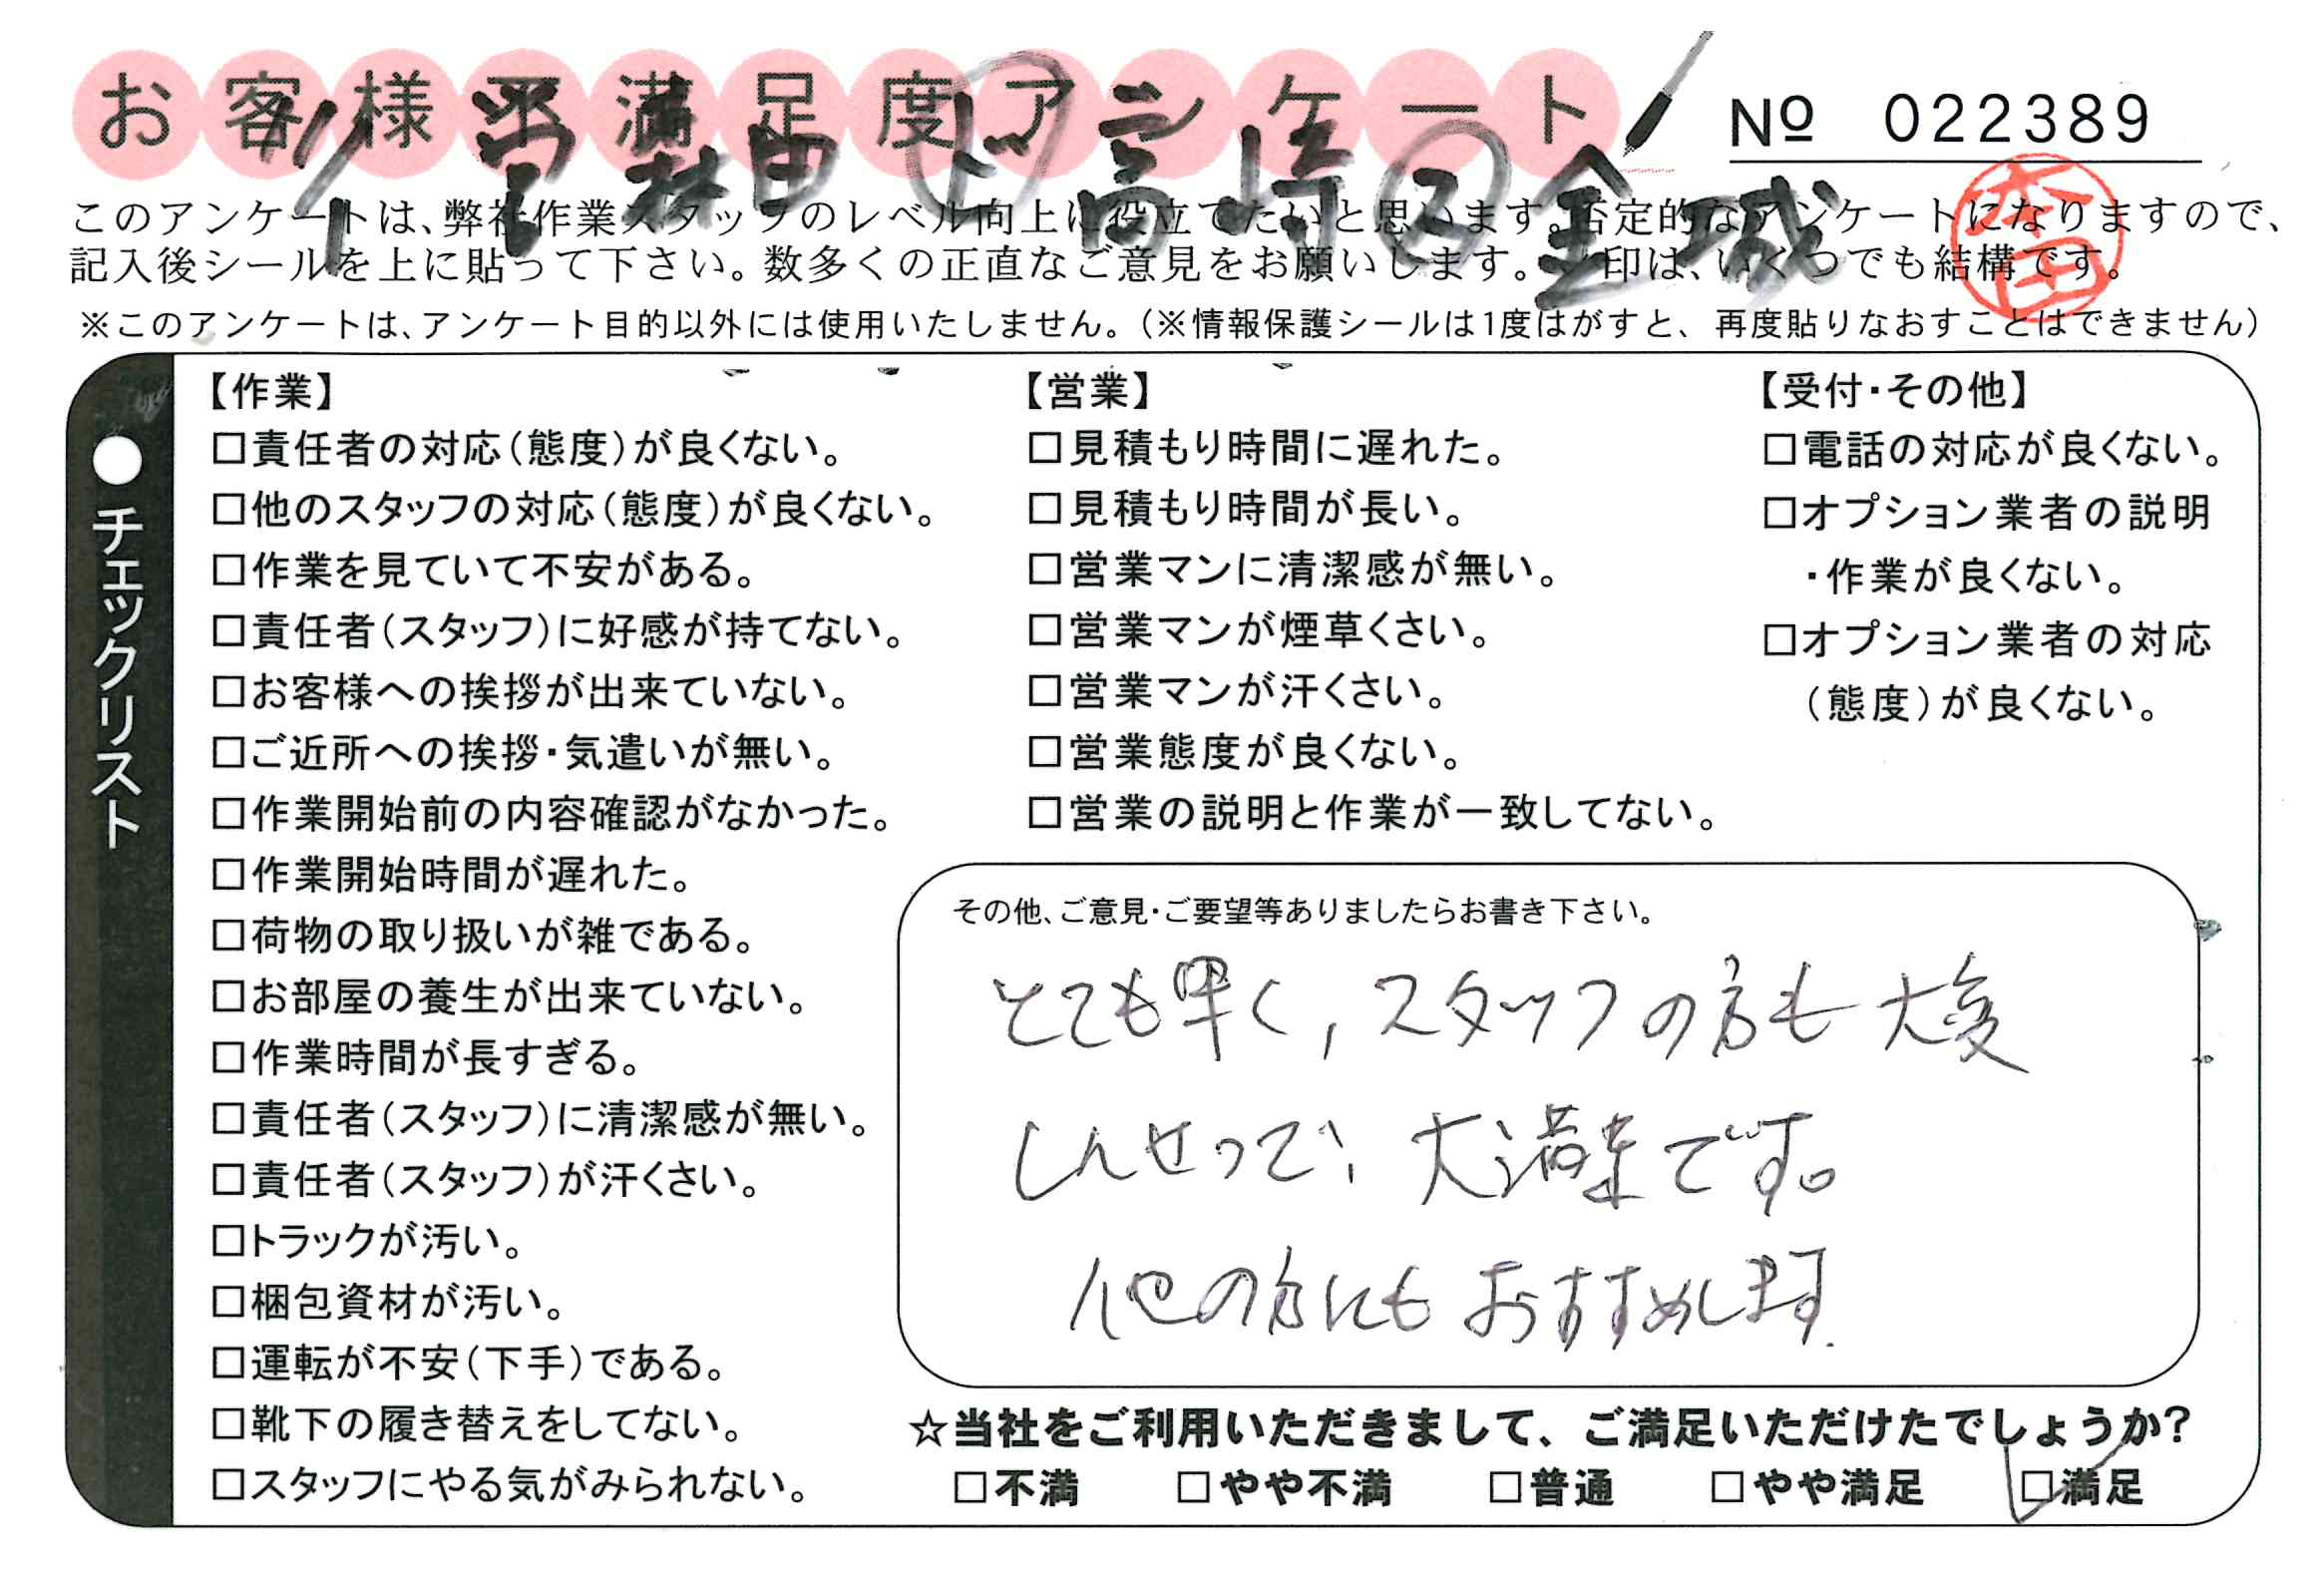 お客様不満足度アンケート
№ 022389
1/1 営 林田 ド 高崎 ス 金城
本田
このアンケートは、弊社作業スタッフのレベル向上に役立てたいと思います。否定的なアンケートになりますので、
記入後シールを上に貼って下さい。数多くの正直なご意見をお願いします。レ印は、いくつでも結構です。
※このアンケートは、アンケート目的以外には使用いたしません。（※情報保護シールは1度はがすと、再度貼りなおすことはできません）
●チェックリスト
【作業】
□責任者の対応（態度）が良くない。
□他のスタッフの対応（態度）が良くない。
□作業を見ていて不安がある。
□責任者（スタッフ）に好感が持てない。
□お客様への挨拶が出来ていない。
□ご近所への挨拶・気遣いが無い。
□作業開始前の内容確認がなかった。
□作業開始時間が遅れた。
□荷物の取り扱いが雑である。
□お部屋の養生が出来ていない。
□作業時間が長すぎる。
□責任者（スタッフ）に清潔感が無い。
□責任者（スタッフ）が汗くさい。
□トラックが汚い。
□梱包資材が汚い。
□運転が不安（下手）である。
□靴下の履き替えをしてない。
□スタッフにやる気がみられない。
【営業】
□見積もり時間に遅れた。
□見積もり時間が長い。
□営業マンに清潔感が無い。
□営業マンが煙草くさい。
□営業マンが汗くさい。
□営業態度が良くない。
□営業の説明と作業が一致してない。
【受付・その他】
□電話の対応が良くない。
□オプション業者の説明
・作業が良くない。
□オプション業者の対応
（態度）が良くない。
その他、ご意見・ご要望等ありましたらお書き下さい。
とても早く，スタッフの方も大変
しんせつで、大満足です。
他の方にもおすすめします.
☆当社をご利用いただきまして、ご満足いただけたでしょうか？
□不満 □やや不満 □普通 □やや満足 ☑満足